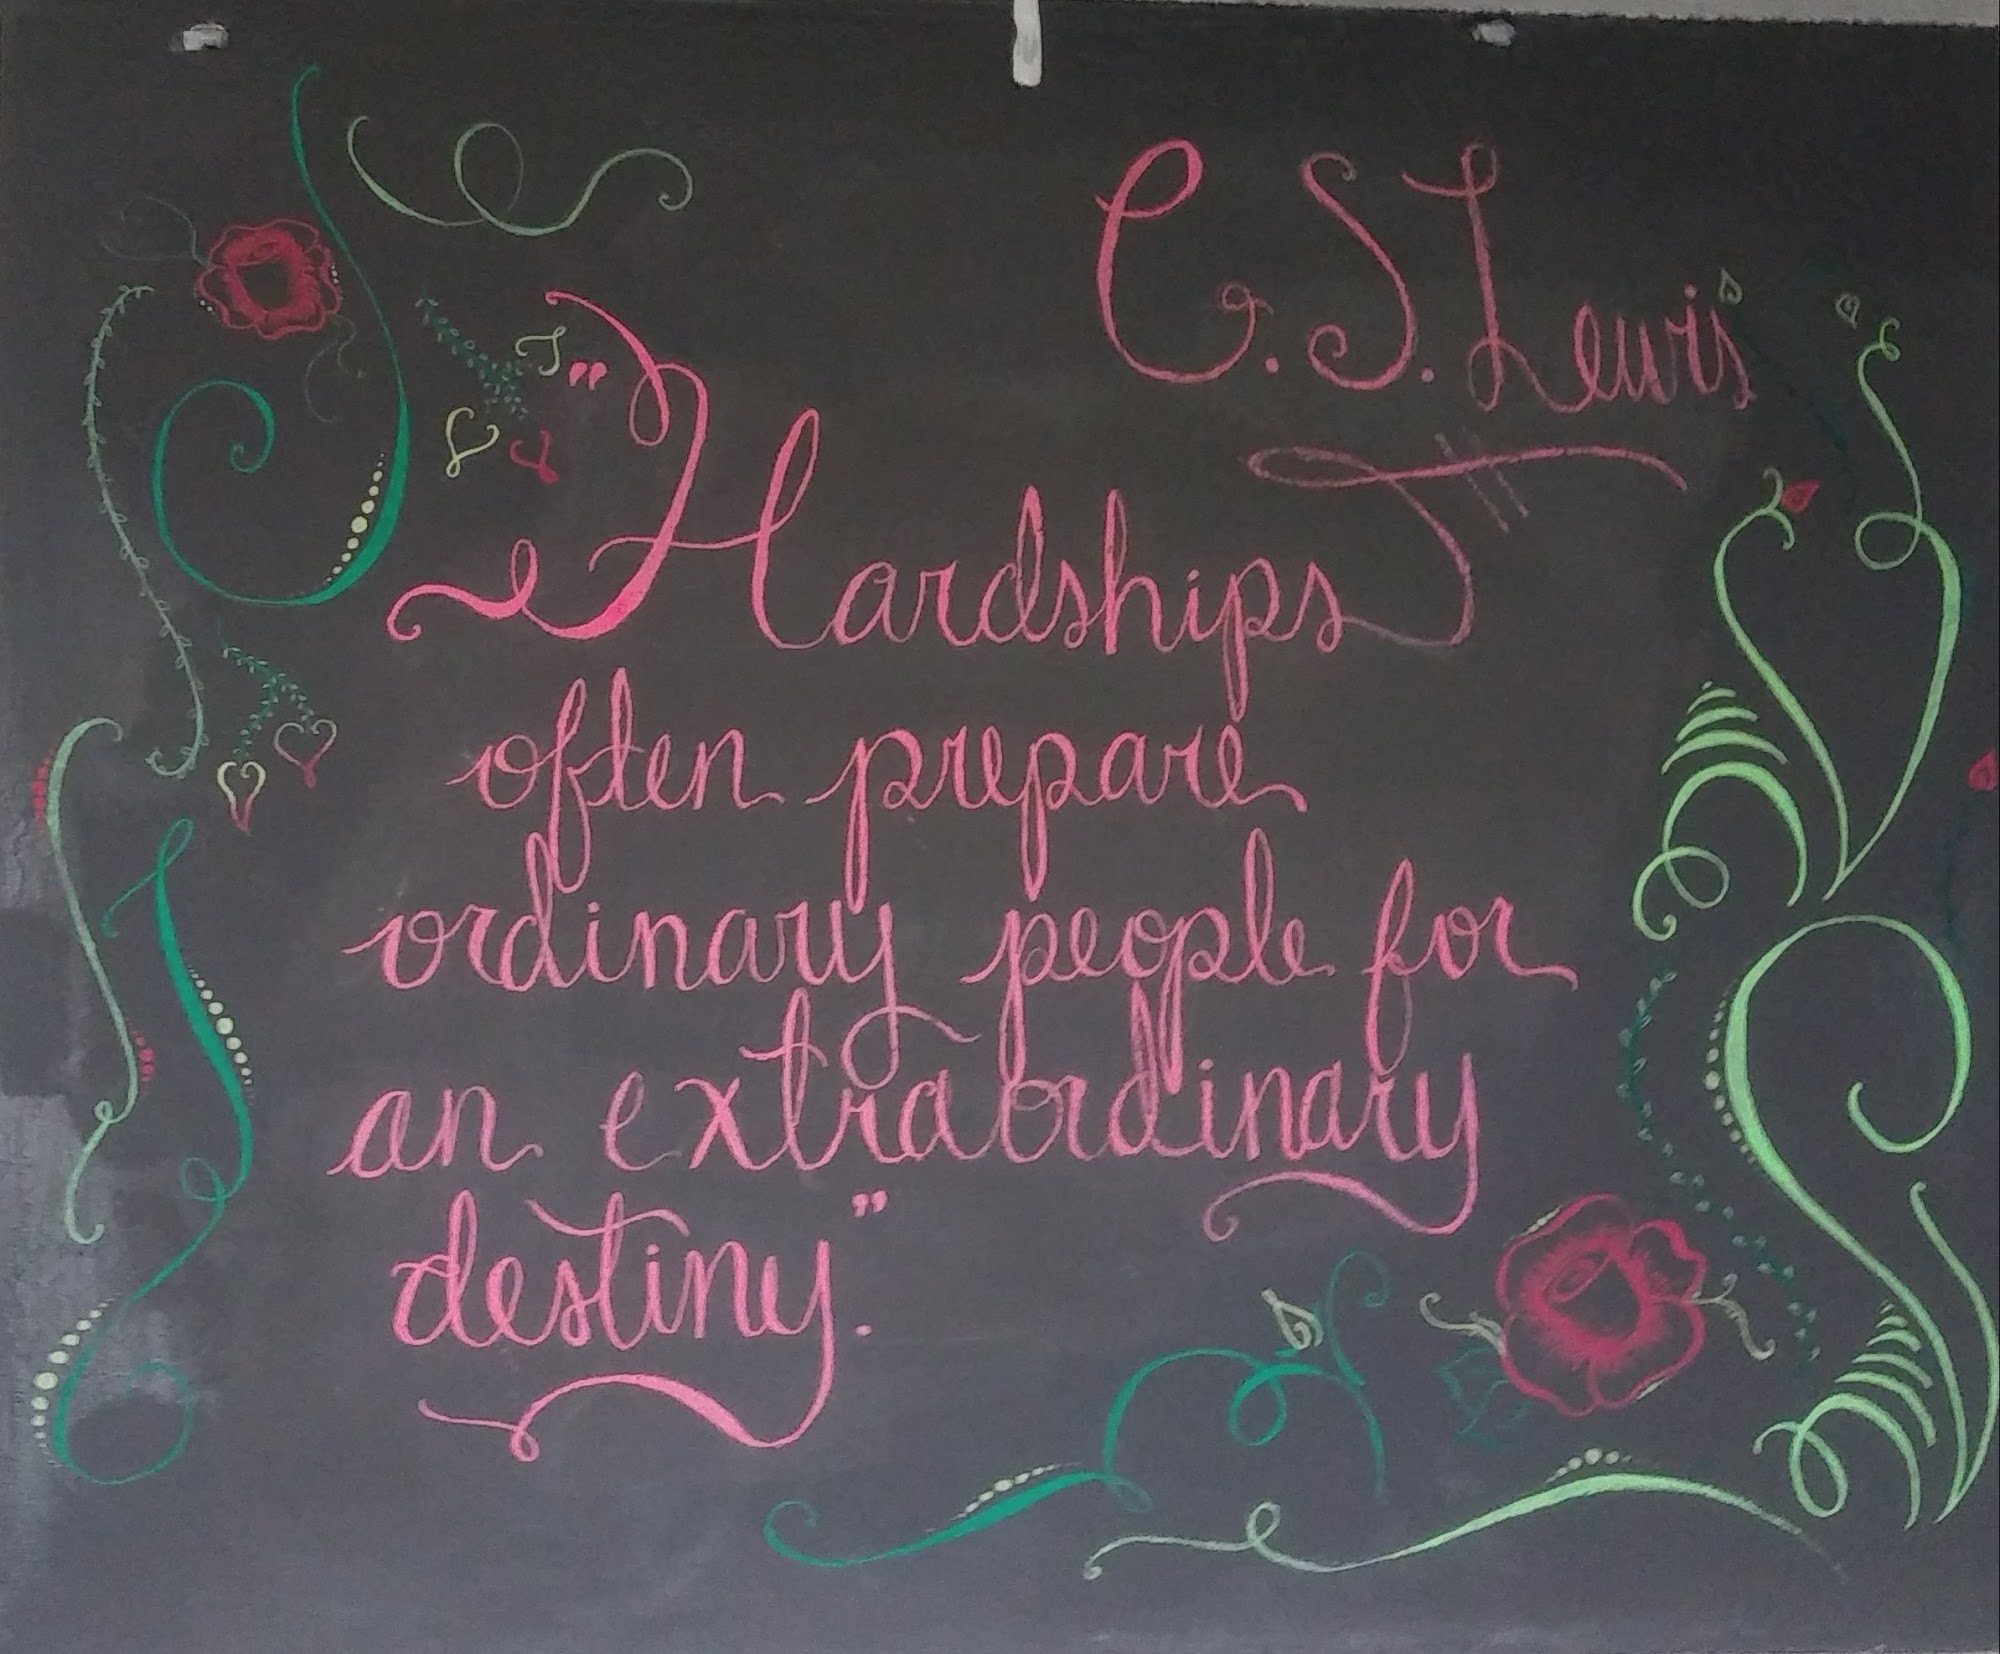 C. S. Lewis
"Hardships
often prepare
ordinary people for
an extraordinary
destiny."